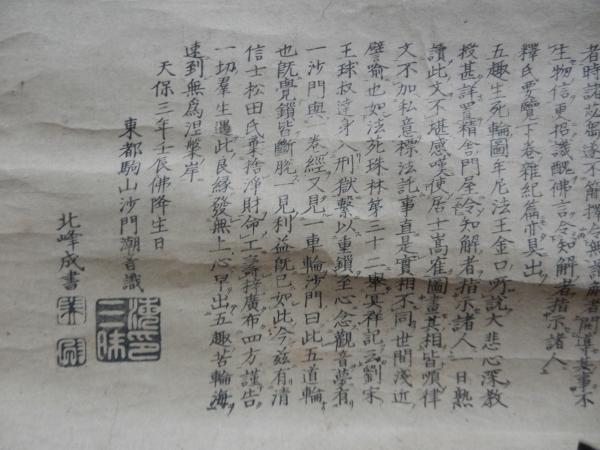 者時諸苾芻遂不簡擇令無識屠者開導其事不
生物信更招譏醜佛言令知解者指示諸人
釋氏要覽下卷雜紀篇亦具出
五趣生死輪圖牟尼法王金口所說大悲心深教
授甚詳置箱舍門屋令知解者指示諸人一日熟
讀此文不堪感嘆使居士嵩崔圖畫其相皆順律
文不加私意標法託事直是實相不同世間淺近
譬喻也如法苑珠林第三十二舉冥祥記云劉宋
王球叔達身入刑獄繫以重鎖至心念觀音夢有
一沙門與一卷經又見一車輪沙門曰此五道輪
也既覺鎖皆斷脫一見利益既已如此今茲有清
信士松田氏棄捨淨財命工壽梓廣布四方謹告
一切羣生遇此良緣發無上心早出五趣苦輪海
速到無爲涅槃岸
天保三年壬辰佛降生日
東都駒山沙門潮音識
北峰成書